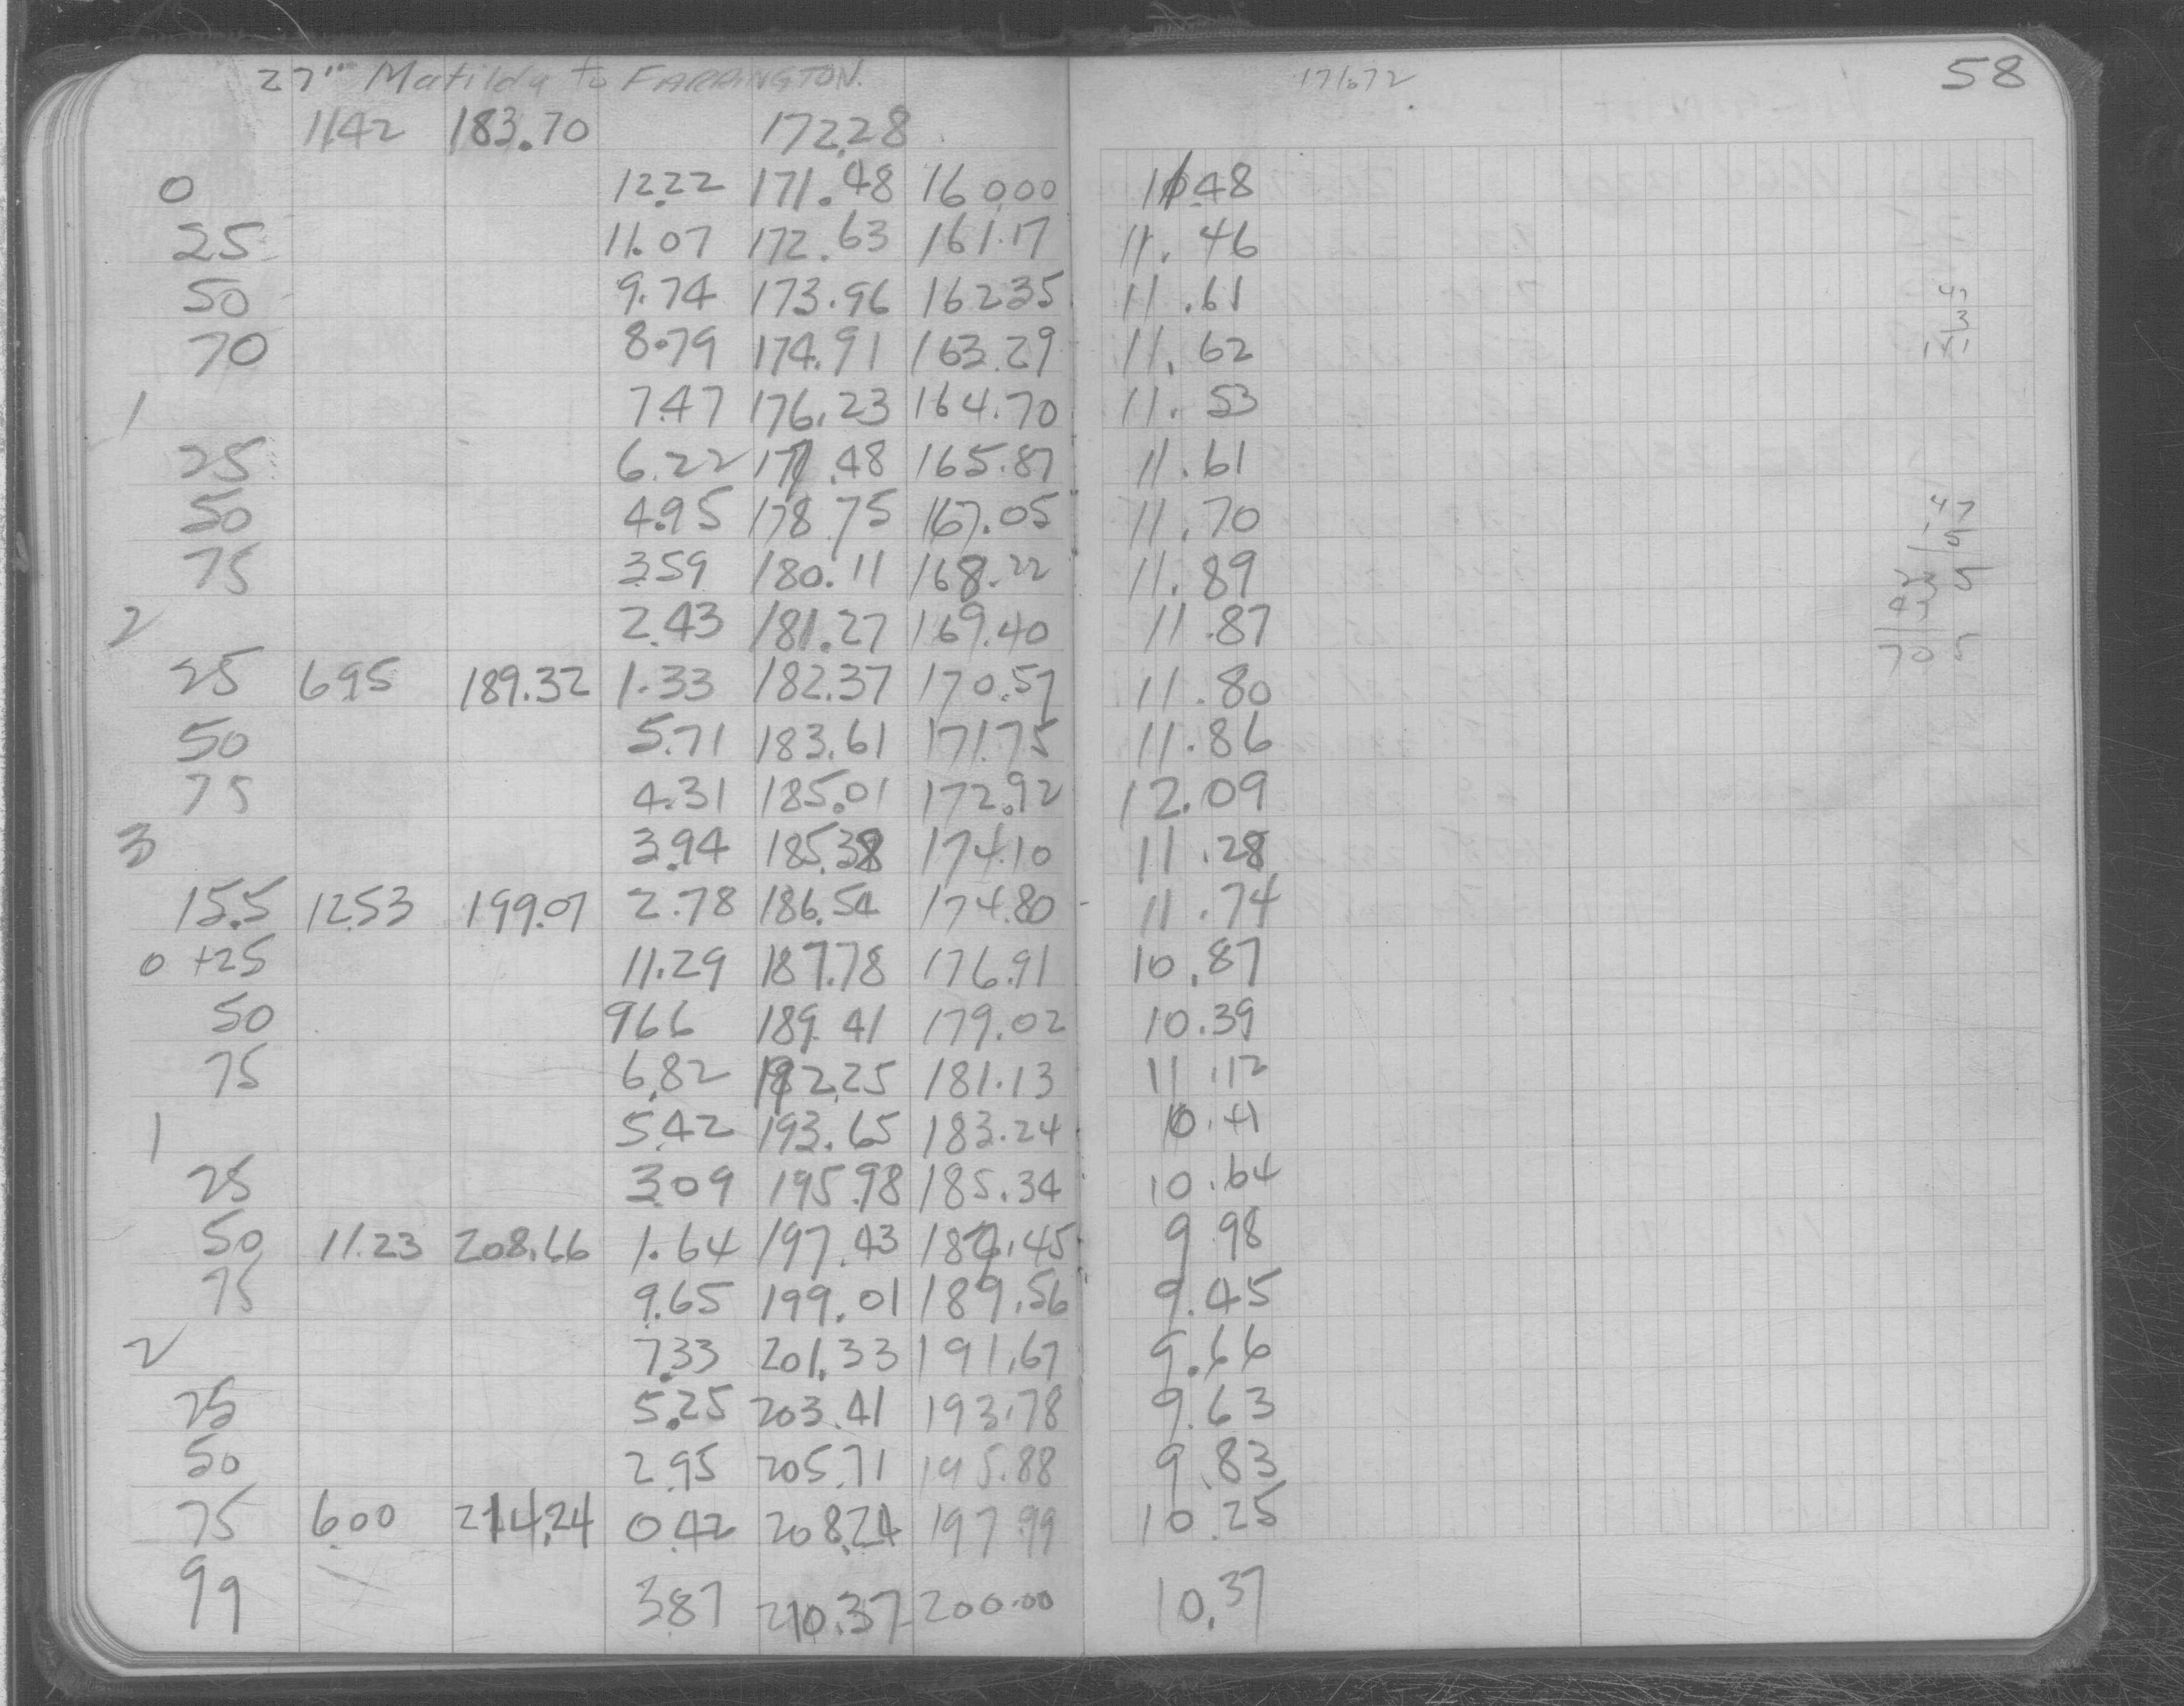 27" Matilda to FARRINGTON. 171.72 58
11.42 183.70 172.28
0 12.22 171.48 160.00 11.48
25 11.07 172.63 161.17 11.46
50 9.74 173.96 162.35 11.61
70 8.79 174.91 163.29 11.62
1 7.47 176.23 164.70 11.53
25 6.22 177.48 165.87 11.61
50 4.95 178.75 167.05 11.70
75 3.59 180.11 168.22 11.89
2 2.43 181.27 169.40 11.87
25 6.95 189.32 1.33 182.37 170.57 11.80
50 5.71 183.61 171.75 11.86
75 4.31 185.01 172.92 12.09
3 3.94 185.38 174.10 11.28
15.5 12.53 199.07 2.78 186.54 174.80 11.74
0 +25 11.29 187.78 176.91 10.87
50 9.66 189.41 179.02 10.39
75 6.82 192.25 181.13 11.12
1 5.42 193.65 183.24 10.41
25 3.09 195.98 185.34 10.64
50 11.23 208.66 1.64 197.43 187.45 9.98
75 9.65 199.01 189.56 9.45
2 7.33 201.33 191.67 9.66
25 5.25 203.41 193.78 9.63
50 2.95 205.71 195.88 9.83
75 6.00 214.24 0.42 208.24 197.99 10.25
99 3.87 210.37 200.00 10.37
47
3
141
.47
5
2 3 5
70 5